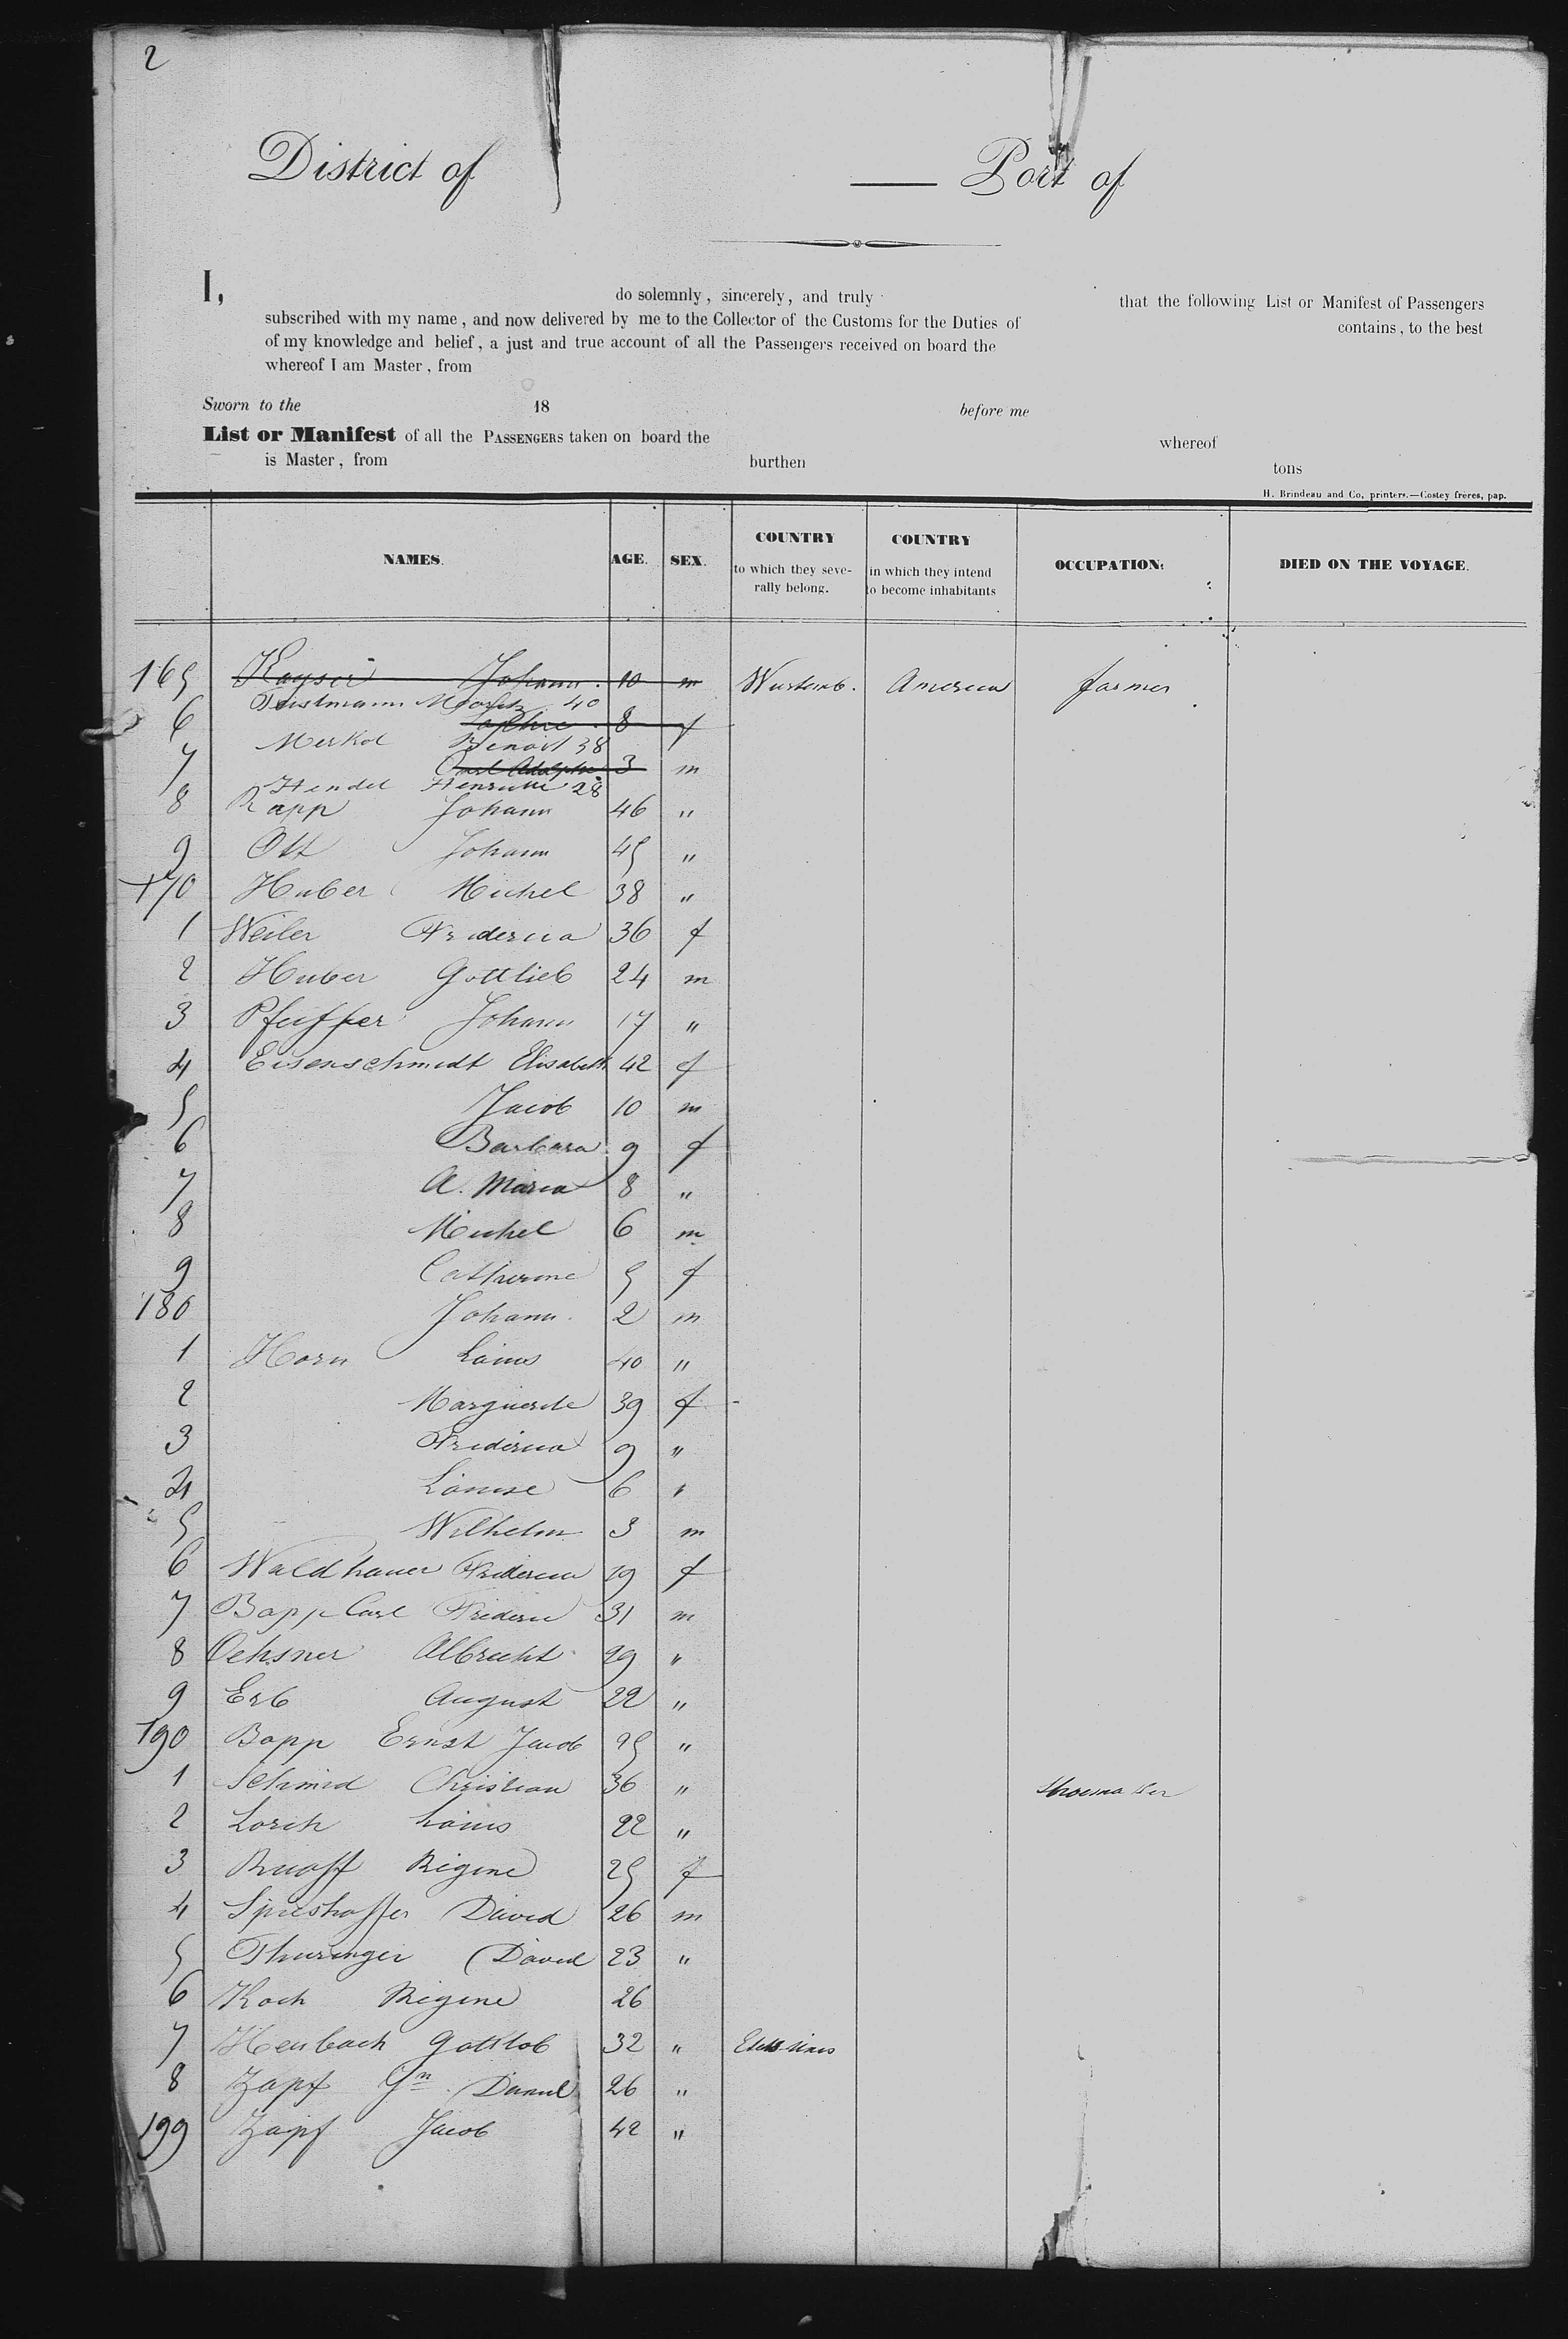 2
District of — Port of
I, do solemnly, sincerely, and truly that the following List or Manifest of Passengers
subscribed with my name, and now delivered by me to the Collector of the Customs for the Duties of contains, to the best
of my knowledge and belief, a just and true account of all the Passengers received on board the
whereof I am Master, from
Sworn to the 18 before me
List or Manifest of all the PASSENGERS taken on board the whereof
is Master, from burthen tons
H. Brindeau and Co, printers.—Costey frères, pap.
NAMES. AGE. SEX. COUNTRY to which they severally belong. COUNTRY in which they intend to become inhabitants OCCUPATION: DIED ON THE VOYAGE.
165 Kayser Johann 10 m Wurtemb. America farmer
Moritz 40
6 Sophie 8 f
Merkel Benoit 38
7 Carl Adolphe 3 m
Hendel Henriette 28
8 Rapp Johann 46 "
9 Ott Johann 45 "
170 Huber Michel 38 "
1 Weiler Friderica 36 f
2 Huber Gottlieb 24 m
3 Pfeiffer Johann 17 "
4 Eisenschmidt Elisabeth 42 f
5 Jacob 10 m
6 Barbara 9 f
7 A. Maria 8 "
8 Michel 6 m
9 Catherine 5 f
180 Johann 2 m
1 Horn Louis 40 "
2 Marguerite 39 f
3 Friderica 9 "
4 Louise 6 "
5 Wilhelm 3 m
6 Waldhauer Friderica 19 f
7 Bapp Carl Frideric 31 m
8 Oehsner Albrecht 29 "
9 Erb August 22 "
190 Bopp Ernst Jacob 25 "
1 Schmid Christian 36 " Shoemaker
2 Lorch Louis 22 "
3 Ruoff Regine 25 f
4 Spieshoffer David 26 m
5 Thuringer David 23 "
6 Koch Regine 26
7 Heubach Gottlob 32 "
8 Zapf Gn Daniel 26 "
199 Zapf Jacob 42 "